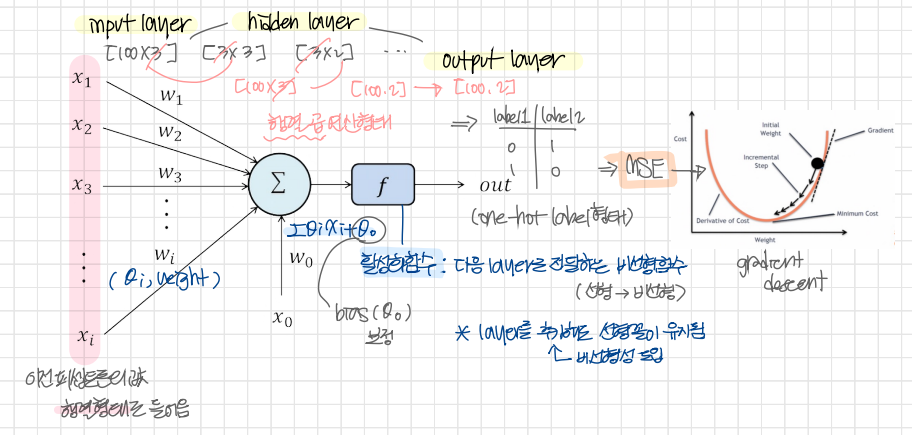 input layer hidden layer
[100×3] [3×3] [3×2] ...
output layer
[100×3] [100.2] → [100.2]
행렬 곱 연산형태
x1
x2
x3
xi
w1
w2
w3
wi
(θi, weight)
Σ
f
out
Σθixi+θ0
w0
x0
bias(θ0)
보정
⇒ label1 label2
0 1
1 0
(one-hot label형태)
⇒ MSE →
Cost
Initial
Weight
Gradient
Incremental
Step
Derivative of Cost
Minimum Cost
Weight
gradient
descent
활성화함수 : 다음 layer로 전달하는 비선형함수
(선형 → 비선형)
* layer를 추가해도 선형꼴이 유지됨
↑ 비선형성 도입
이전 퍼셉트론의 값
행렬형태로 들어옴